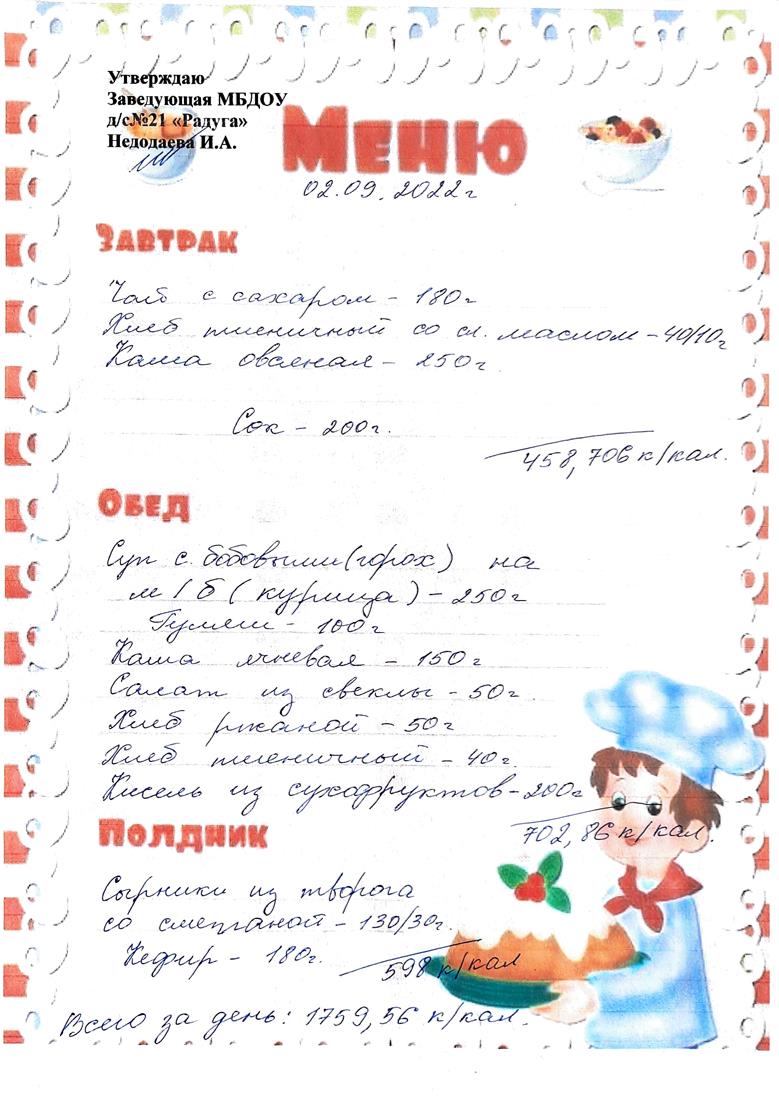 Утверждаю
Заведующая МБДОУ
д/с№21 «Радуга»
Недодаева И.А.
Меню
02.09.2022г
Завтрак
Чай с сахаром - 180г
Хлеб пшеничный со сл. маслом - 40/10г
Каша овсяная - 250г
Сок - 200г.
458,706 к/кал.
Обед
Суп с бобовыми (горох) на
м/б (курица) - 250г
Гуляш - 100г
Каша ячневая - 150г
Салат из свеклы - 50г.
Хлеб ржаной - 50г
Хлеб пшеничный - 40г.
Кисель из сухофруктов - 200г
702,86 к/кал.
Полдник
Сырники из творога
со сметаной - 130/30г.
Кефир - 180г.
598 к/кал
Всего за день: 1759,56 к/кал.